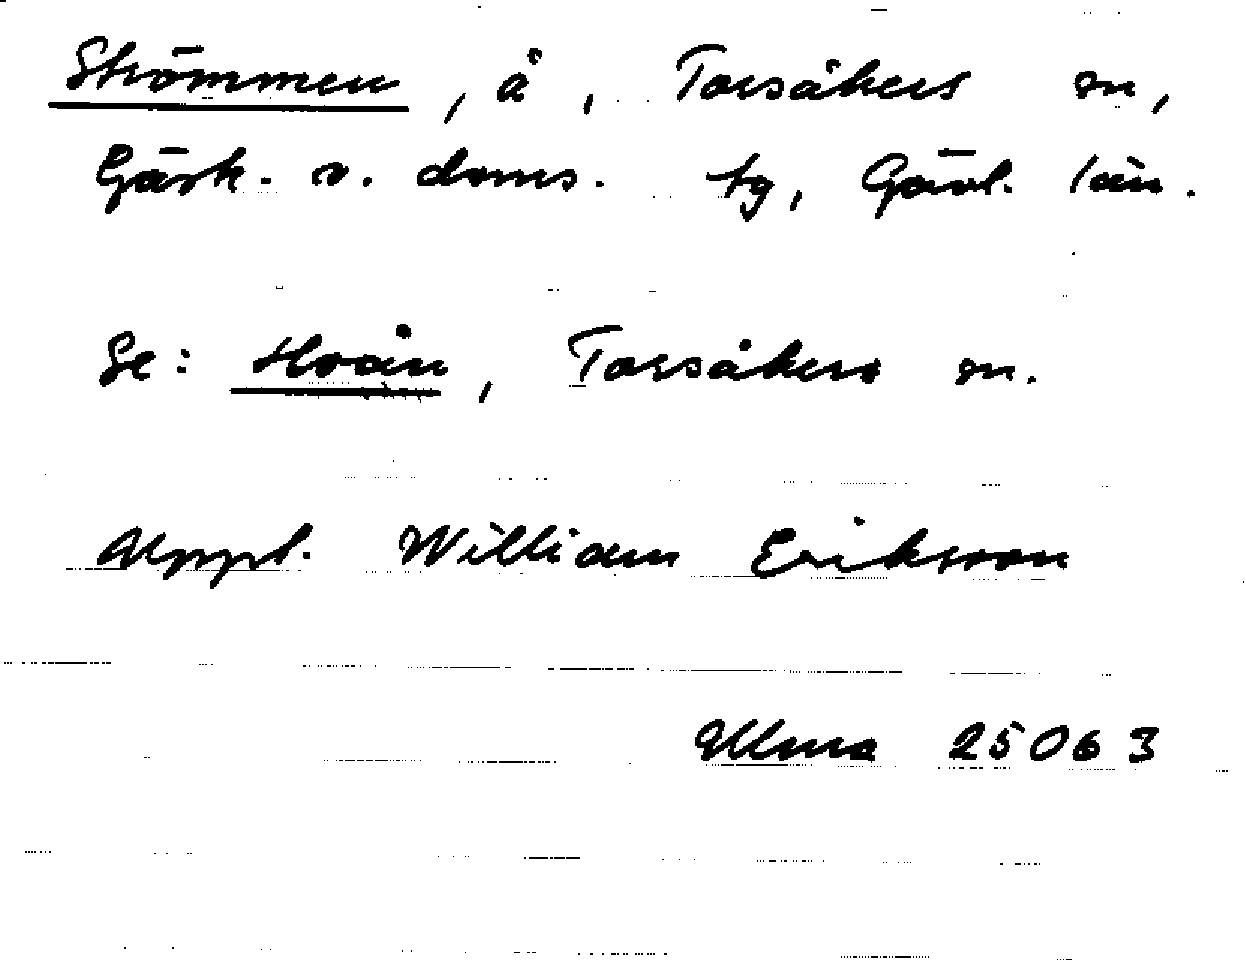 Strömmen, å, Torsåkers sn,
Gästr. v. doms. tg, Gävl. län.
Se: Hoån, Torsåkers sn.
Uppt. William Eriksson
Ulma 25063